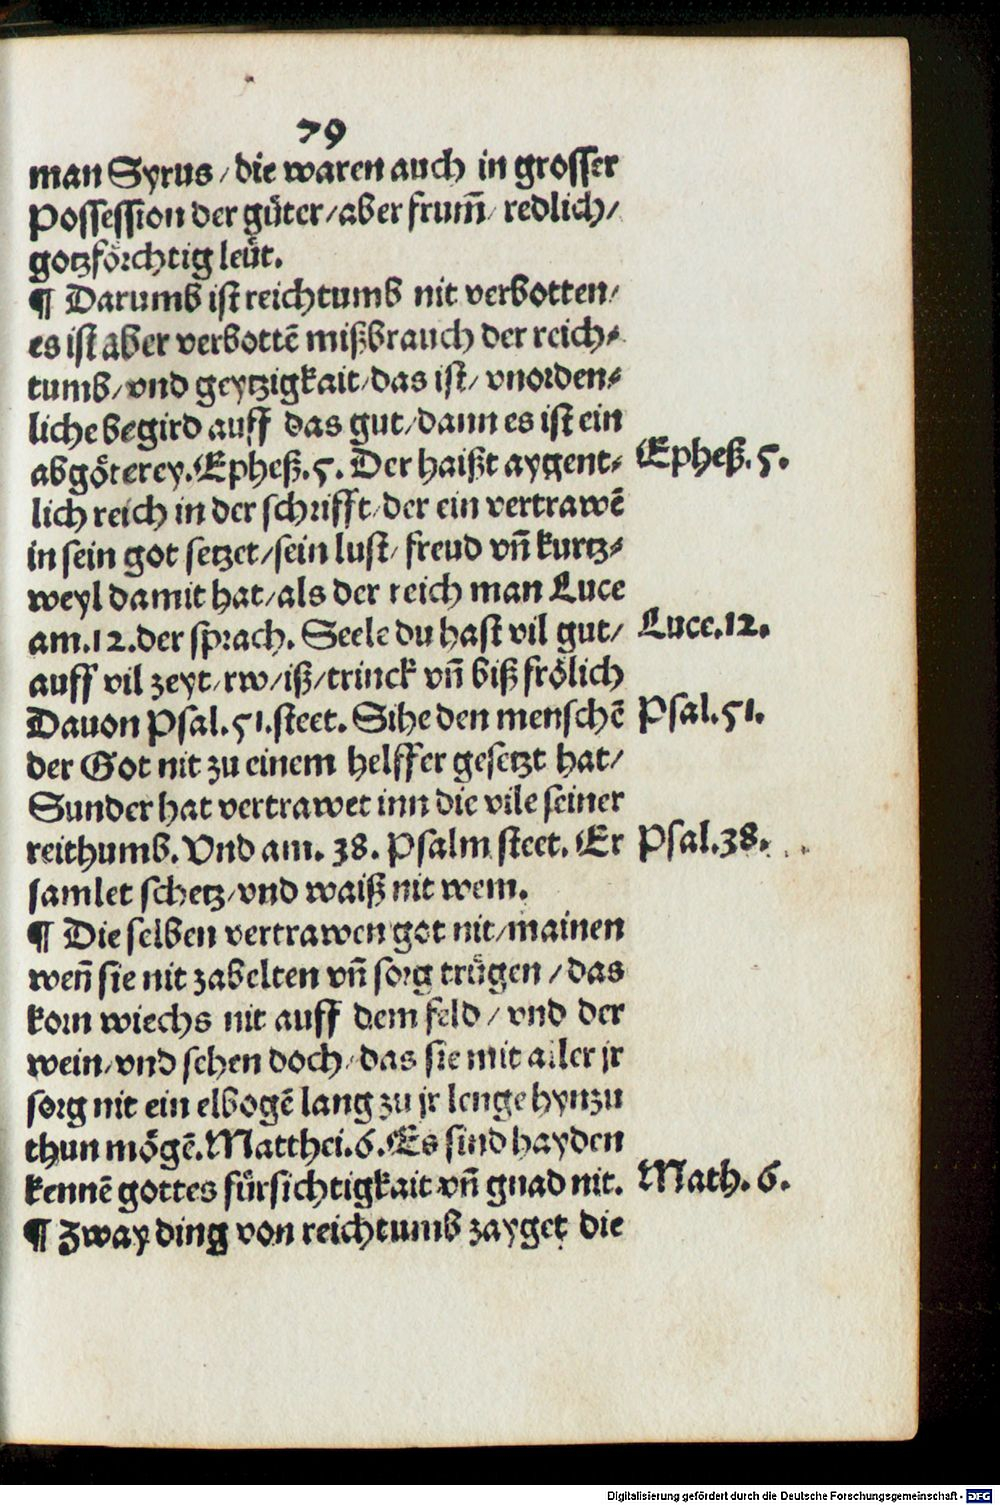 79
man Syrus / die waren auch in grosser
Possession der güter / aber frum̃ / redlich /
gotzförchtig leüt.
¶ Darumb ist reichtumb nit verbotten /
es ist aber verbottē mißbrauch der reich-
tumb / vnd geytzigkait / das ist / vnorden-
liche begird auff das gut / dann es ist ein
abgöterey. Epheß. 5. Der haißt aygent- Epheß. 5.
lich reich in der schrifft / der ein vertrawē
in sein got setzet / sein lust / freud vñ kurtz-
weyl damit hat / als der reich man Luce
am. 12. der sprach. Seele du hast vil gut / Luce. 12.
auff vil zeyt / rw / iß / trinck vñ biß frölich
Dauon Psal. 51. steet. Sihe den menschē Psal. 51.
der Got nit zu einem helffer gesetzt hat /
Sunder hat vertrawet inn die vile seiner
reithumb. Vnd am. 38. Psalm steet. Er Psal. 38.
samlet schetz / vnd waiß nit wem.
¶ Die selben vertrawen got nit / mainen
weñ sie nit zabelten vñ sorg trügen / das
korn wiechs nit auff dem feld / vnd der
wein / vnd sehen doch / das sie mit aller jr
sorg nit ein elbogē lang zu jr lenge hynzu
thun mögē. Matthei. 6. Es sind hayden
kennē gottes fürsichtigkait vñ gnad nit. Math. 6.
¶ Zway ding von reichtumb zayget die
Digitalisierung gefördert durch die Deutsche Forschungsgemeinschaft - DFG